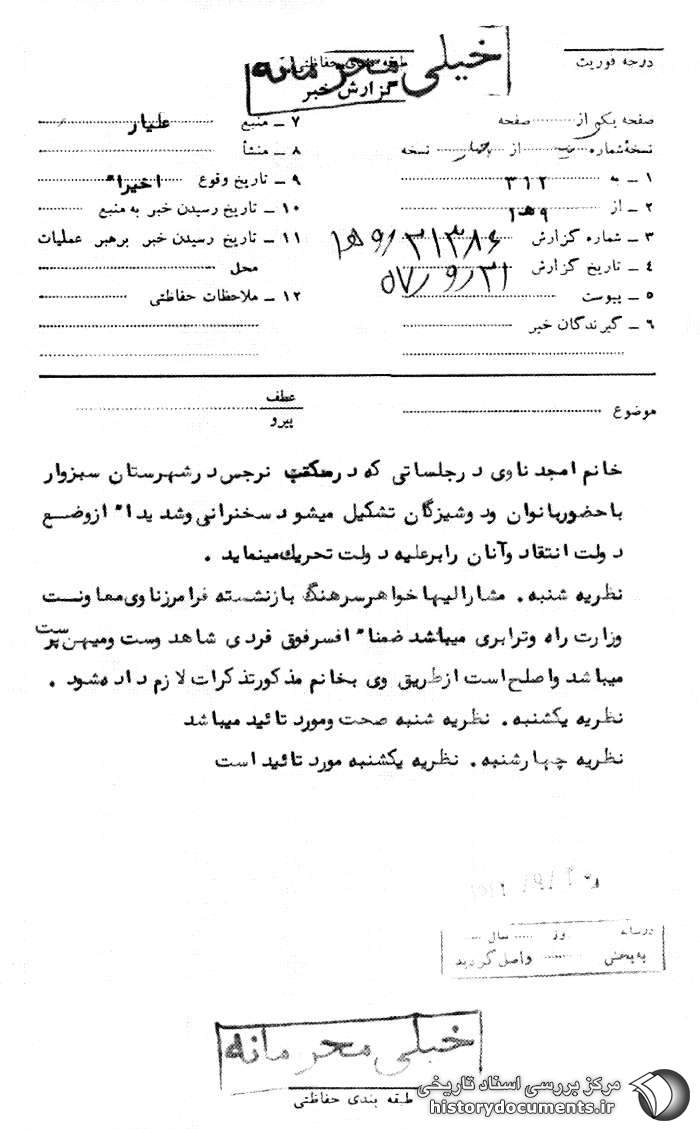 درجه فوریت
طبقه بندی حفاظتی
خیلی محرمانه
گزارش خبر
صفحه یکی از صفحه
نسخه شماره از چهار نسخه
۱ ـ به ۳۱۲
۲ ـ از ۹ هـ ۱
۳ ـ شماره گزارش ۳۱۳۸۶ / ۹ هـ ۱
۴ ـ تاریخ گزارش ۵۷/۹/۳۱
۵ ـ پیوست
۶ ـ گیرندگان خبر
۷ ـ منبع علیار
۸ ـ منشأ
۹ ـ تاریخ وقوع اخیرا"
۱۰ ـ تاریخ رسیدن خبر به منبع
۱۱ ـ تاریخ رسیدن خبر برهبر عملیات
محل
۱۲ ـ ملاحظات حفاظتی
موضوع
عطف
پیرو
خانم امجد ناوی در جلساتی که در مکتب نرجس در شهرستان سبزوار
با حضور بانوان و دوشیزگان تشکیل میشود سخنرانی و شدیدا" از وضع
دولت انتقاد و آنان را بر علیه دولت تحریک مینماید .
نظریه شنبه . مشارالیها خواهر سرهنگ بازنشسته فرامرز ناوی معاونت
وزارت راه و ترابری میباشد ضمنا" افسر فوق فردی شاهدوست و میهن پرست
میباشد و اصلح است از طریق وی بخانم مذکور تذکرات لازم داده شود .
نظریه یکشنبه . نظریه شنبه صحت و مورد تائید میباشد
نظریه چهارشنبه . نظریه یکشنبه مورد تائید است
روز سال
به بخش واصل گردید
خیلی محرمانه
طبقه بندی حفاظتی
مرکز بررسی اسناد تاریخی
historydocuments.ir